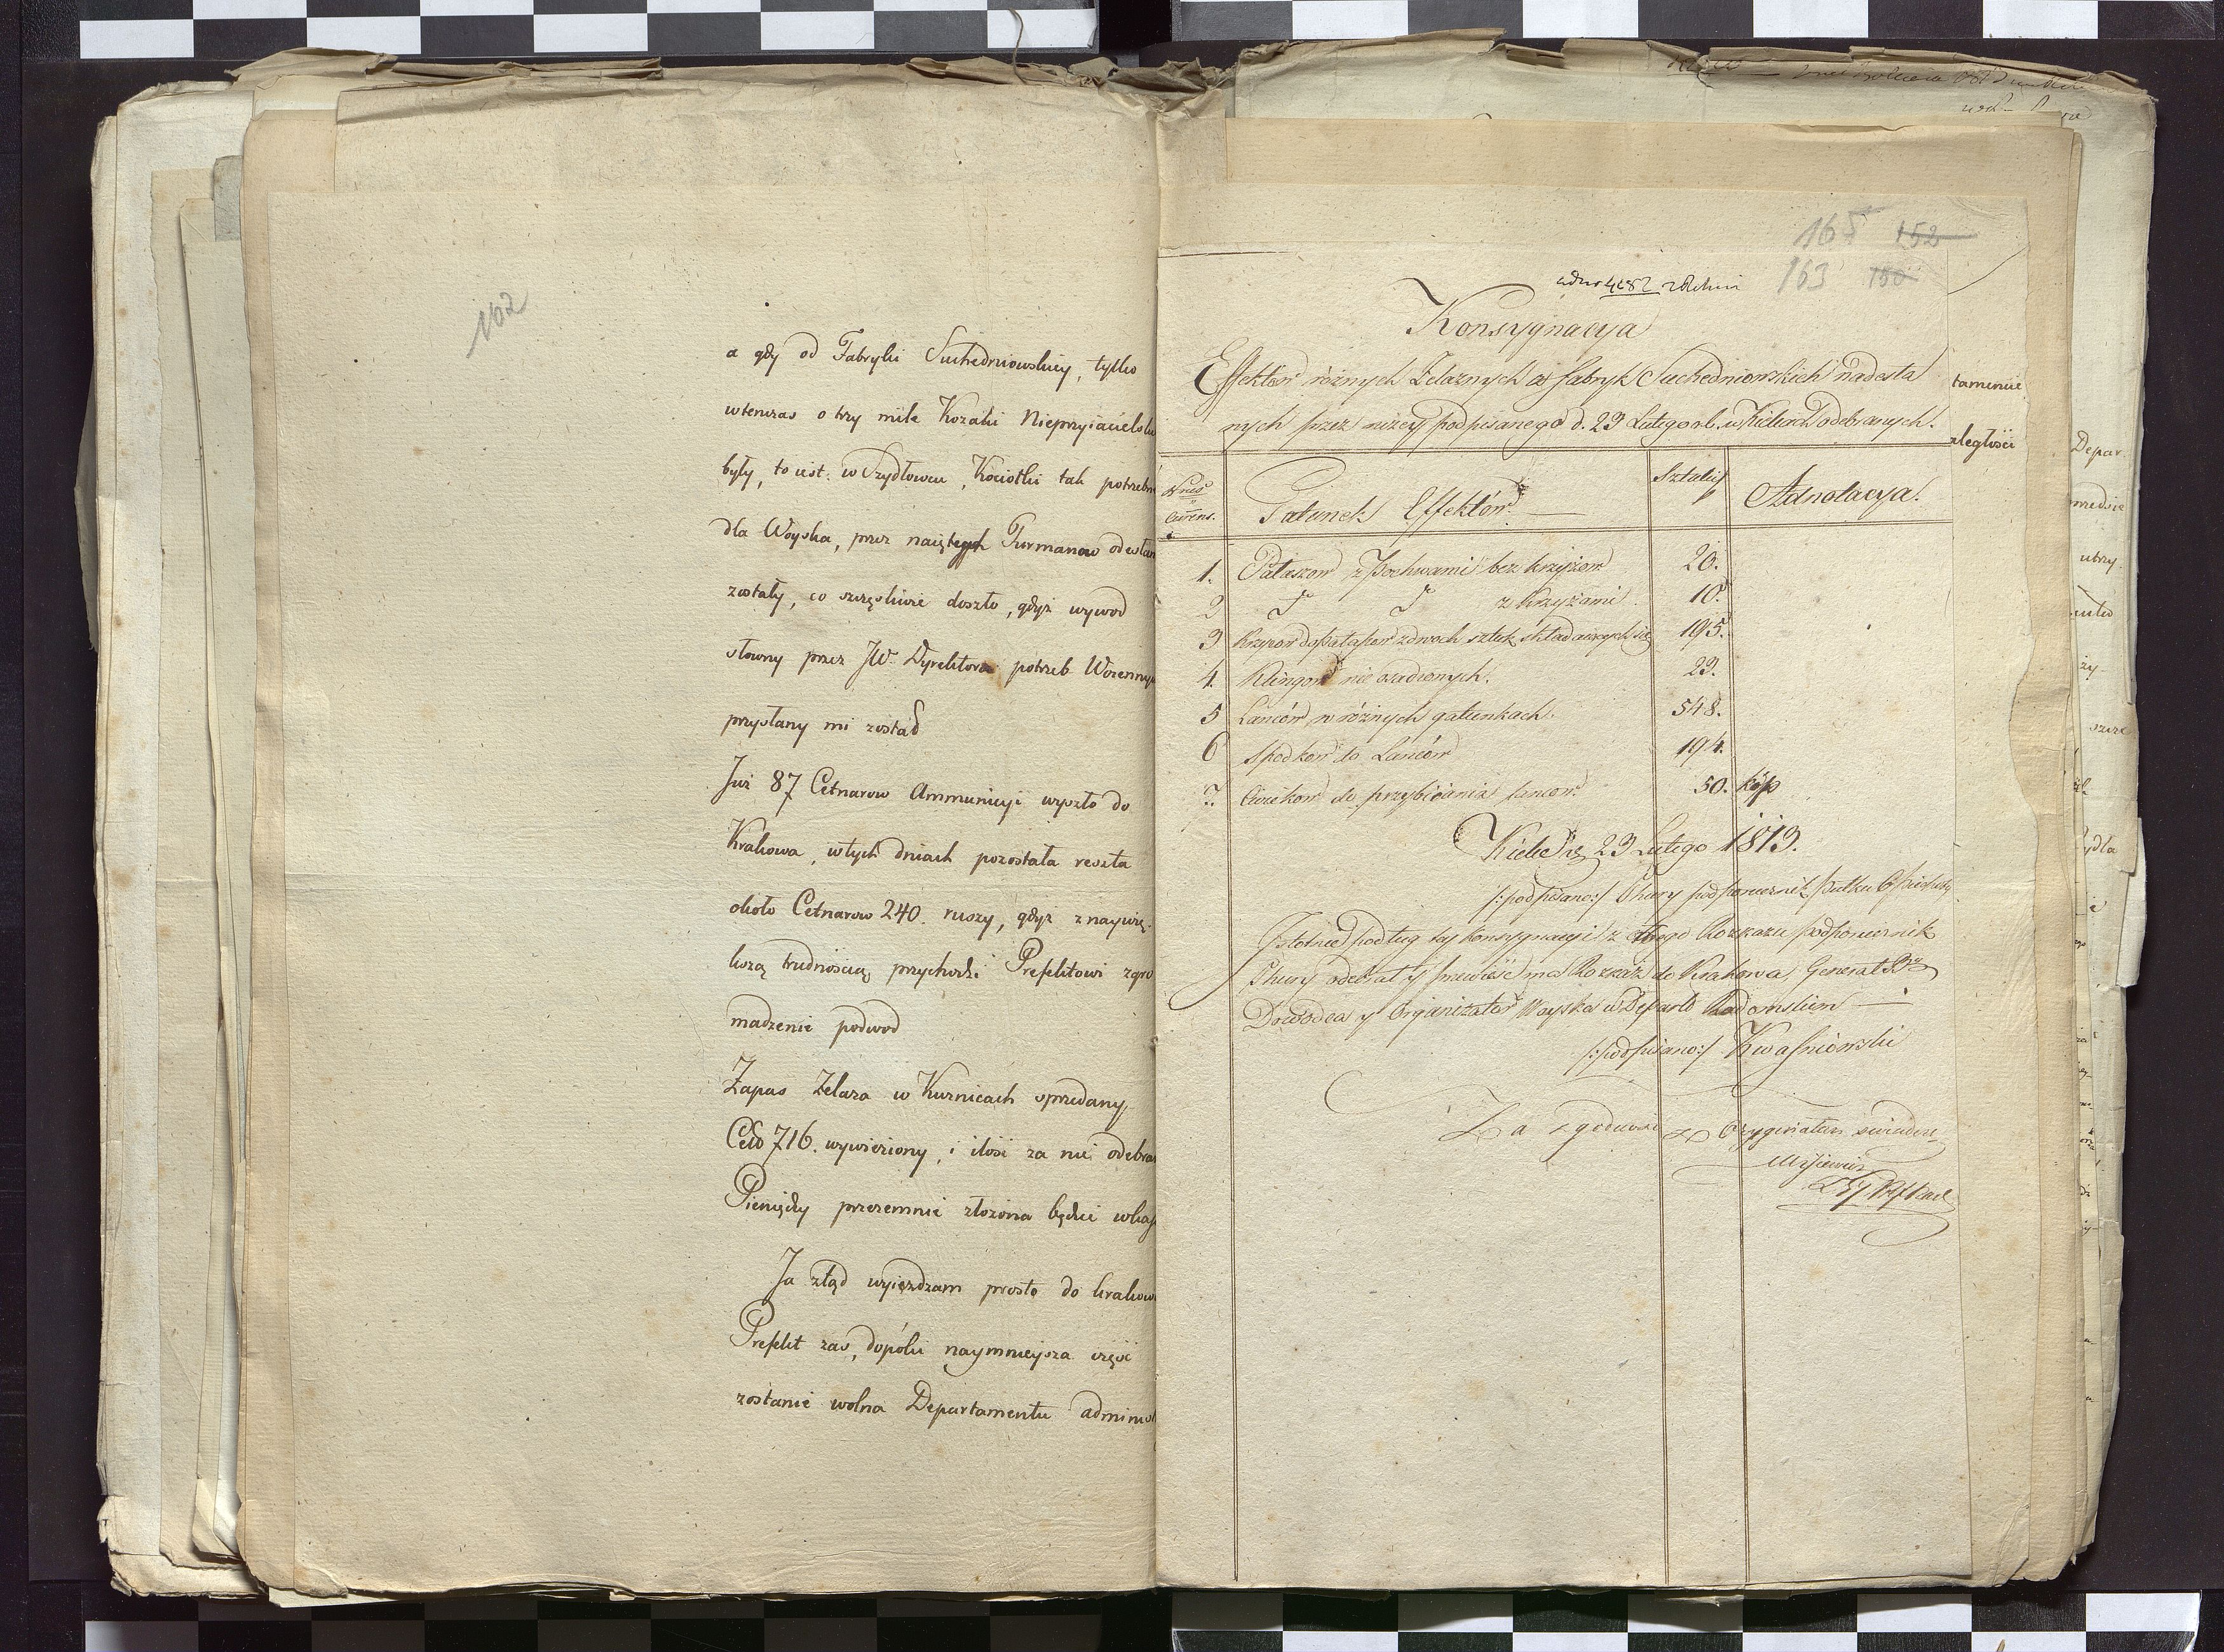 162
a gdy od Fabryki Suchedniowskiey, tylko
wtenczas o trzy mile Kozaki Nieprzyiacielskie
były, to iest: w Szydłowcu, Kociołki tak potrzebne
dla Woyska, przez naiętych Furmanow odesłane
zostały, co szczęsliwie doszło, gdyż wywod
słowny przez JW. Dyrektora potrzeb Woiennych
przysłany mi został
Już 87 Cetnarow Ammunicyi wyszło do
Krakowa, w tych dniach pozostała reszta
około Cetnarow 240. ruszy, gdyż z naywię-
kszą trudnością przychodzi Prefektowi zgro
madzenie podwod
Zapas Zelaza w Kuznicach sprzedany,
716. wywieziony, i ilość za nie odebra
Pieniędzy przezemnie złożona będzie w kas
Ja ztąd wyieżdzam prosto do Krakowa
Prefekt zas, dopóki naymnieysza część
zostanie wolna Departamentu administ
165 152
163 150
4482
Konsygnacya
Effektów różnych Zelaznych z fabryk Suchedniowskich nadesła
nych przez niżey podpisanego d. 23 Lutego r.b. w Kielcach odebranych.
Nrus currens. Gatunek Effektów Sztuki Adnotacya.
1. Pałaszow z Pochwami bez krzyżow 20.
2 " " z krzyżami 10.
3 Krzyżow do Pałaszow z dwoch sztuk składaiących się 195.
4. Klingow nie osadzonych. 23.
5 Lanców w różnych gatunkach. 548.
6 Spodkow do Lanców 194.
7. Cwiekow do przybiiania lancow 50. kóp
Kielce d. 23 Lutego 1813.
/:podpisano:/ Thury podporucznik Pułku 6 Piechoty
Istotnie podług tey konsygnacyi z mego Rozkazu podporucznik
Thury odebrał y przewieść ma Rozkaz do Krakowa, Generał
Dowodca y Organizator Woyska w Departe Radomskim
/:podpisano:/ Kwasniewski
Za zgodność z Oryginałem swiadczę
tamencie
ległości
Depar